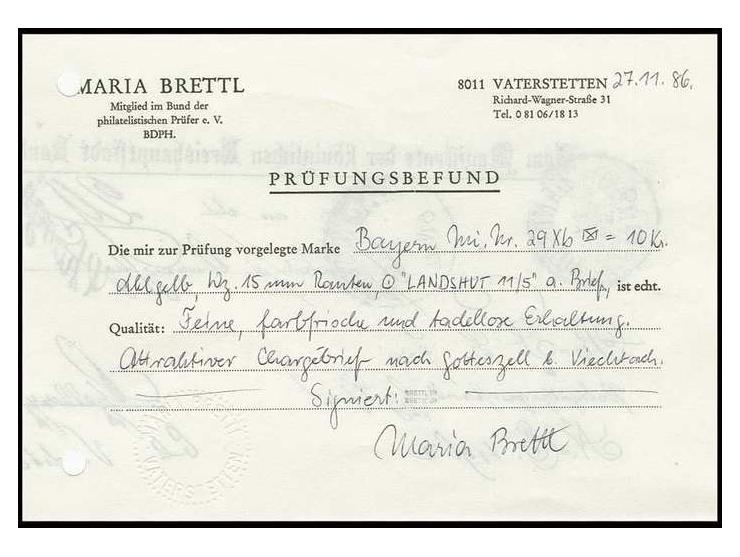 MARIA BRETTL
Mitglied im Bund der
philatelistischen Prüfer e. V.
BDPH.
8011 VATERSTETTEN 27.11.86.
Richard-Wagner-Straße 31
Tel. 0 81 06/18 13
PRÜFUNGSBEFUND
Die mir zur Prüfung vorgelegte Marke Bayern Mi. Nr. 29 Xb ⊠ = 10 Kr.
dkl'gelb, Wz. 15 mm Rauten, ⊙ "LANDSHUT 11/5" a. Brief, ist echt.
Qualität: Feine, farbfrische und tadellose Erhaltung.
Attraktiver Chargébrief nach Gotteszell b. Viechtach.
Signiert:
Maria Brettl
VATERSTETTEN